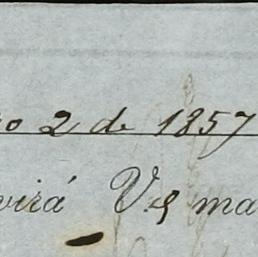 o 2 de 1857
virá V. ma